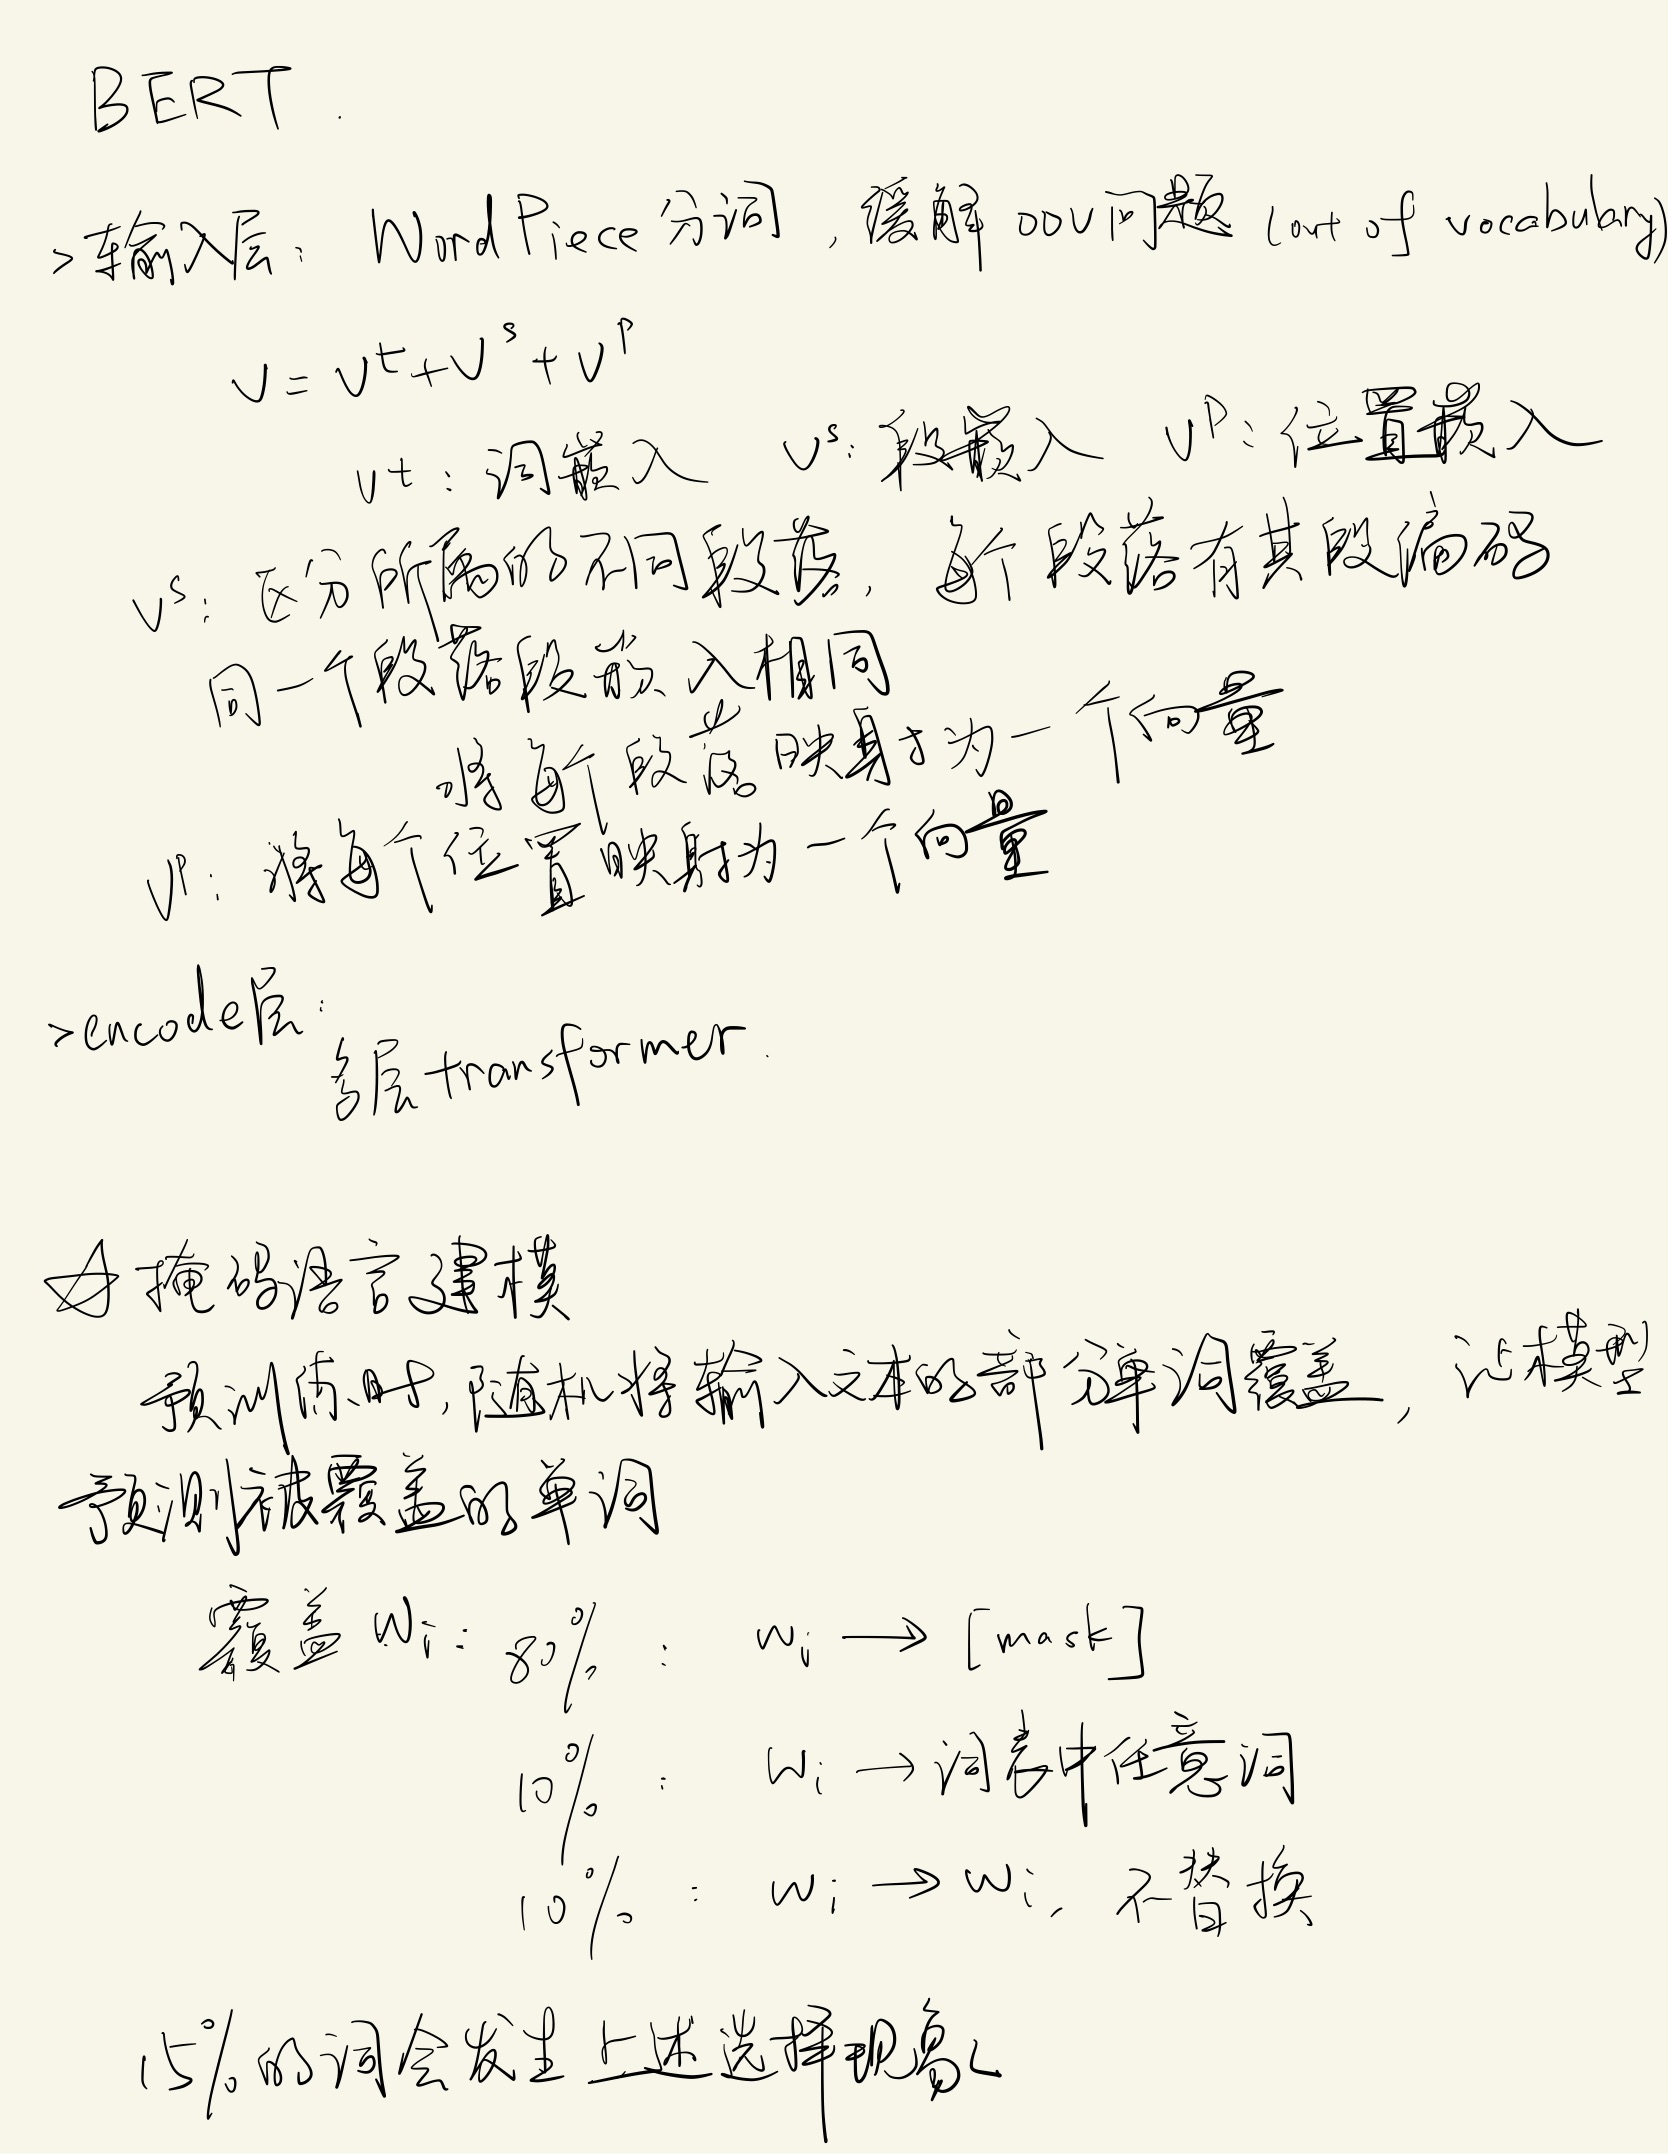 BERT.
>输入层: WordPiece分词,缓解OOV问题 (out of vocabulary)
V = V^t + V^s + V^p
V^t: 词嵌入 V^s: 段嵌入 V^p: 位置嵌入
V^s: 区分所属的不同段落, 每个段落有其段编码
同一个段落段嵌入相同
将每个段落映射为一个向量
V^p: 将每个位置映射为一个向量
>encode层:
多层transformer.
☆掩码语言建模
预训练时,随机将输入文本的部分单词覆盖, 让模型
预测被覆盖的单词
覆盖 Wi: 80% : wi → [mask]
10% : wi → 词表中任意词
10% : wi → wi, 不替换
15%的词会发生上述选择现象